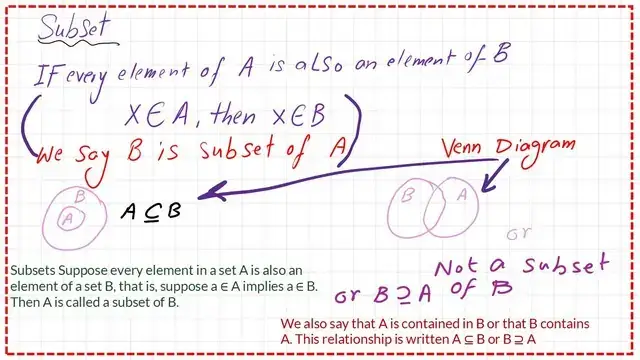 Subset
IF every element of A is also an element of B
X ∈ A, then X ∈ B
We say B is subset of A
Venn Diagram
B
A
A ⊆ B
B
A
or
Not a subset
of B
or B ⊇ A
Subsets Suppose every element in a set A is also an
element of a set B, that is, suppose a ∈ A implies a ∈ B.
Then A is called a subset of B.
We also say that A is contained in B or that B contains
A. This relationship is written A ⊆ B or B ⊇ A